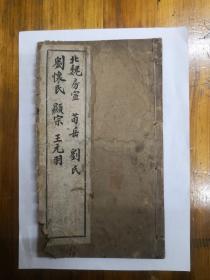 北魏房宣 荀岳 劉氏
劉懷氏 顯宗 王元羽